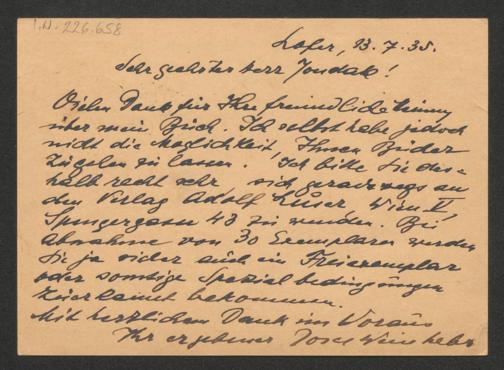 I.N. 226.658
Lofer, 23.7.35.
Sehr geehrter Herr Jondak!
Vielen Dank für Ihre freundliche Meinung
über mein Buch. Ich selbst habe jedoch
nicht die Möglichkeit, Ihnen Bücher
zugehen zu lassen. Ich bitte Sie des-
halb recht sehr sich geradewegs an
den Verlag Adolf Luser Wien V,
Spengergasse 43 zu wenden. Bei
Abnahme von 30 Exemplaren werden
Sie ja sicher auch ein Freiexemplar
oder sonstige Spezialbedingungen
zuerkannt bekommen.
Mit herzlichem Dank im Voraus
Ihr ergebener Josef Weinheber